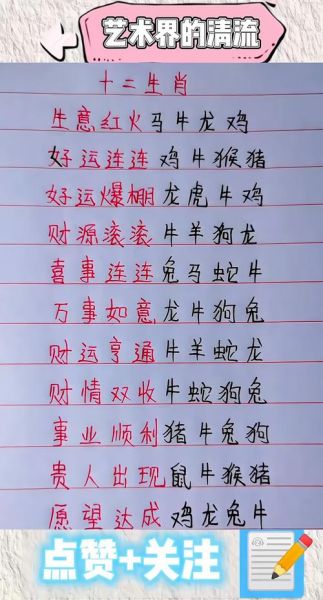 艺术界的清流
十二生肖
生意红火马牛龙鸡
好运连连鸡牛猴猪
好运爆棚龙虎牛鸡
财源滚滚牛羊狗龙
喜事连连兔马蛇牛
万事如意龙牛狗兔
财运亨通牛羊蛇龙
财情双收牛蛇狗兔
事业顺利猪牛兔狗
贵人出现鼠牛猴猪
愿望达成鸡龙兔牛
点赞+关注